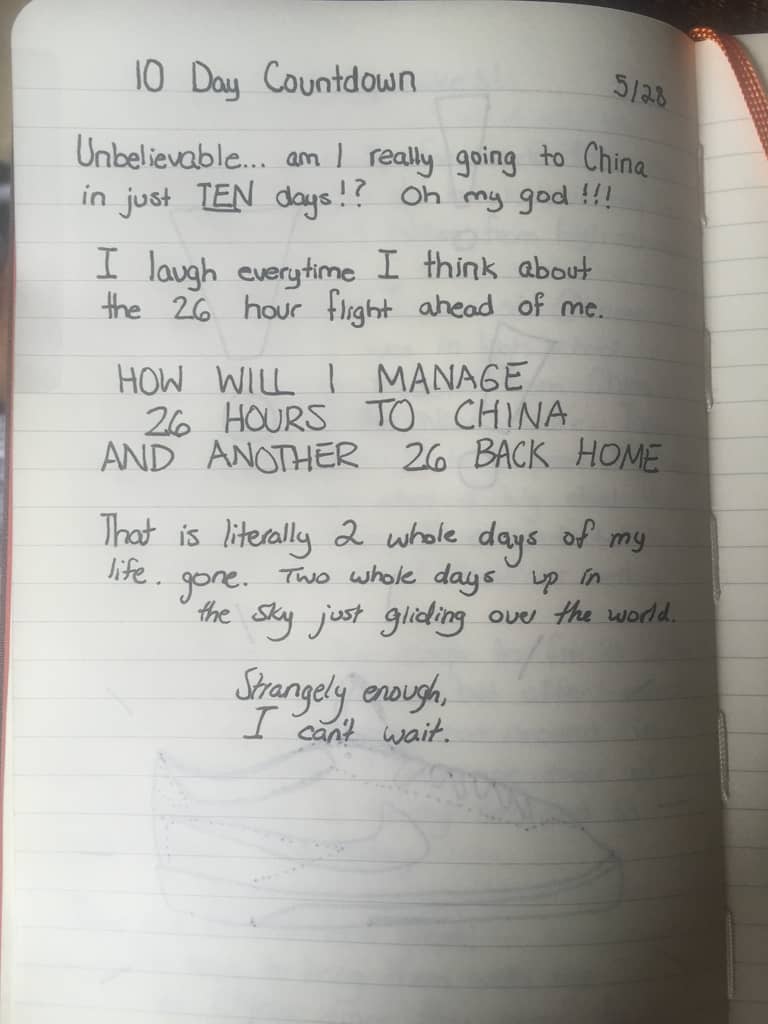 10 Day Countdown
5/28
Unbelievable... am I really going to China
in just TEN days!? Oh my god!!!
I laugh everytime I think about
the 26 hour flight ahead of me.
HOW WILL I MANAGE
26 HOURS TO CHINA
AND ANOTHER 26 BACK HOME
That is literally 2 whole days of my
life. gone. Two whole days up in
the sky just gliding over the world.
Strangely enough,
I can't wait.